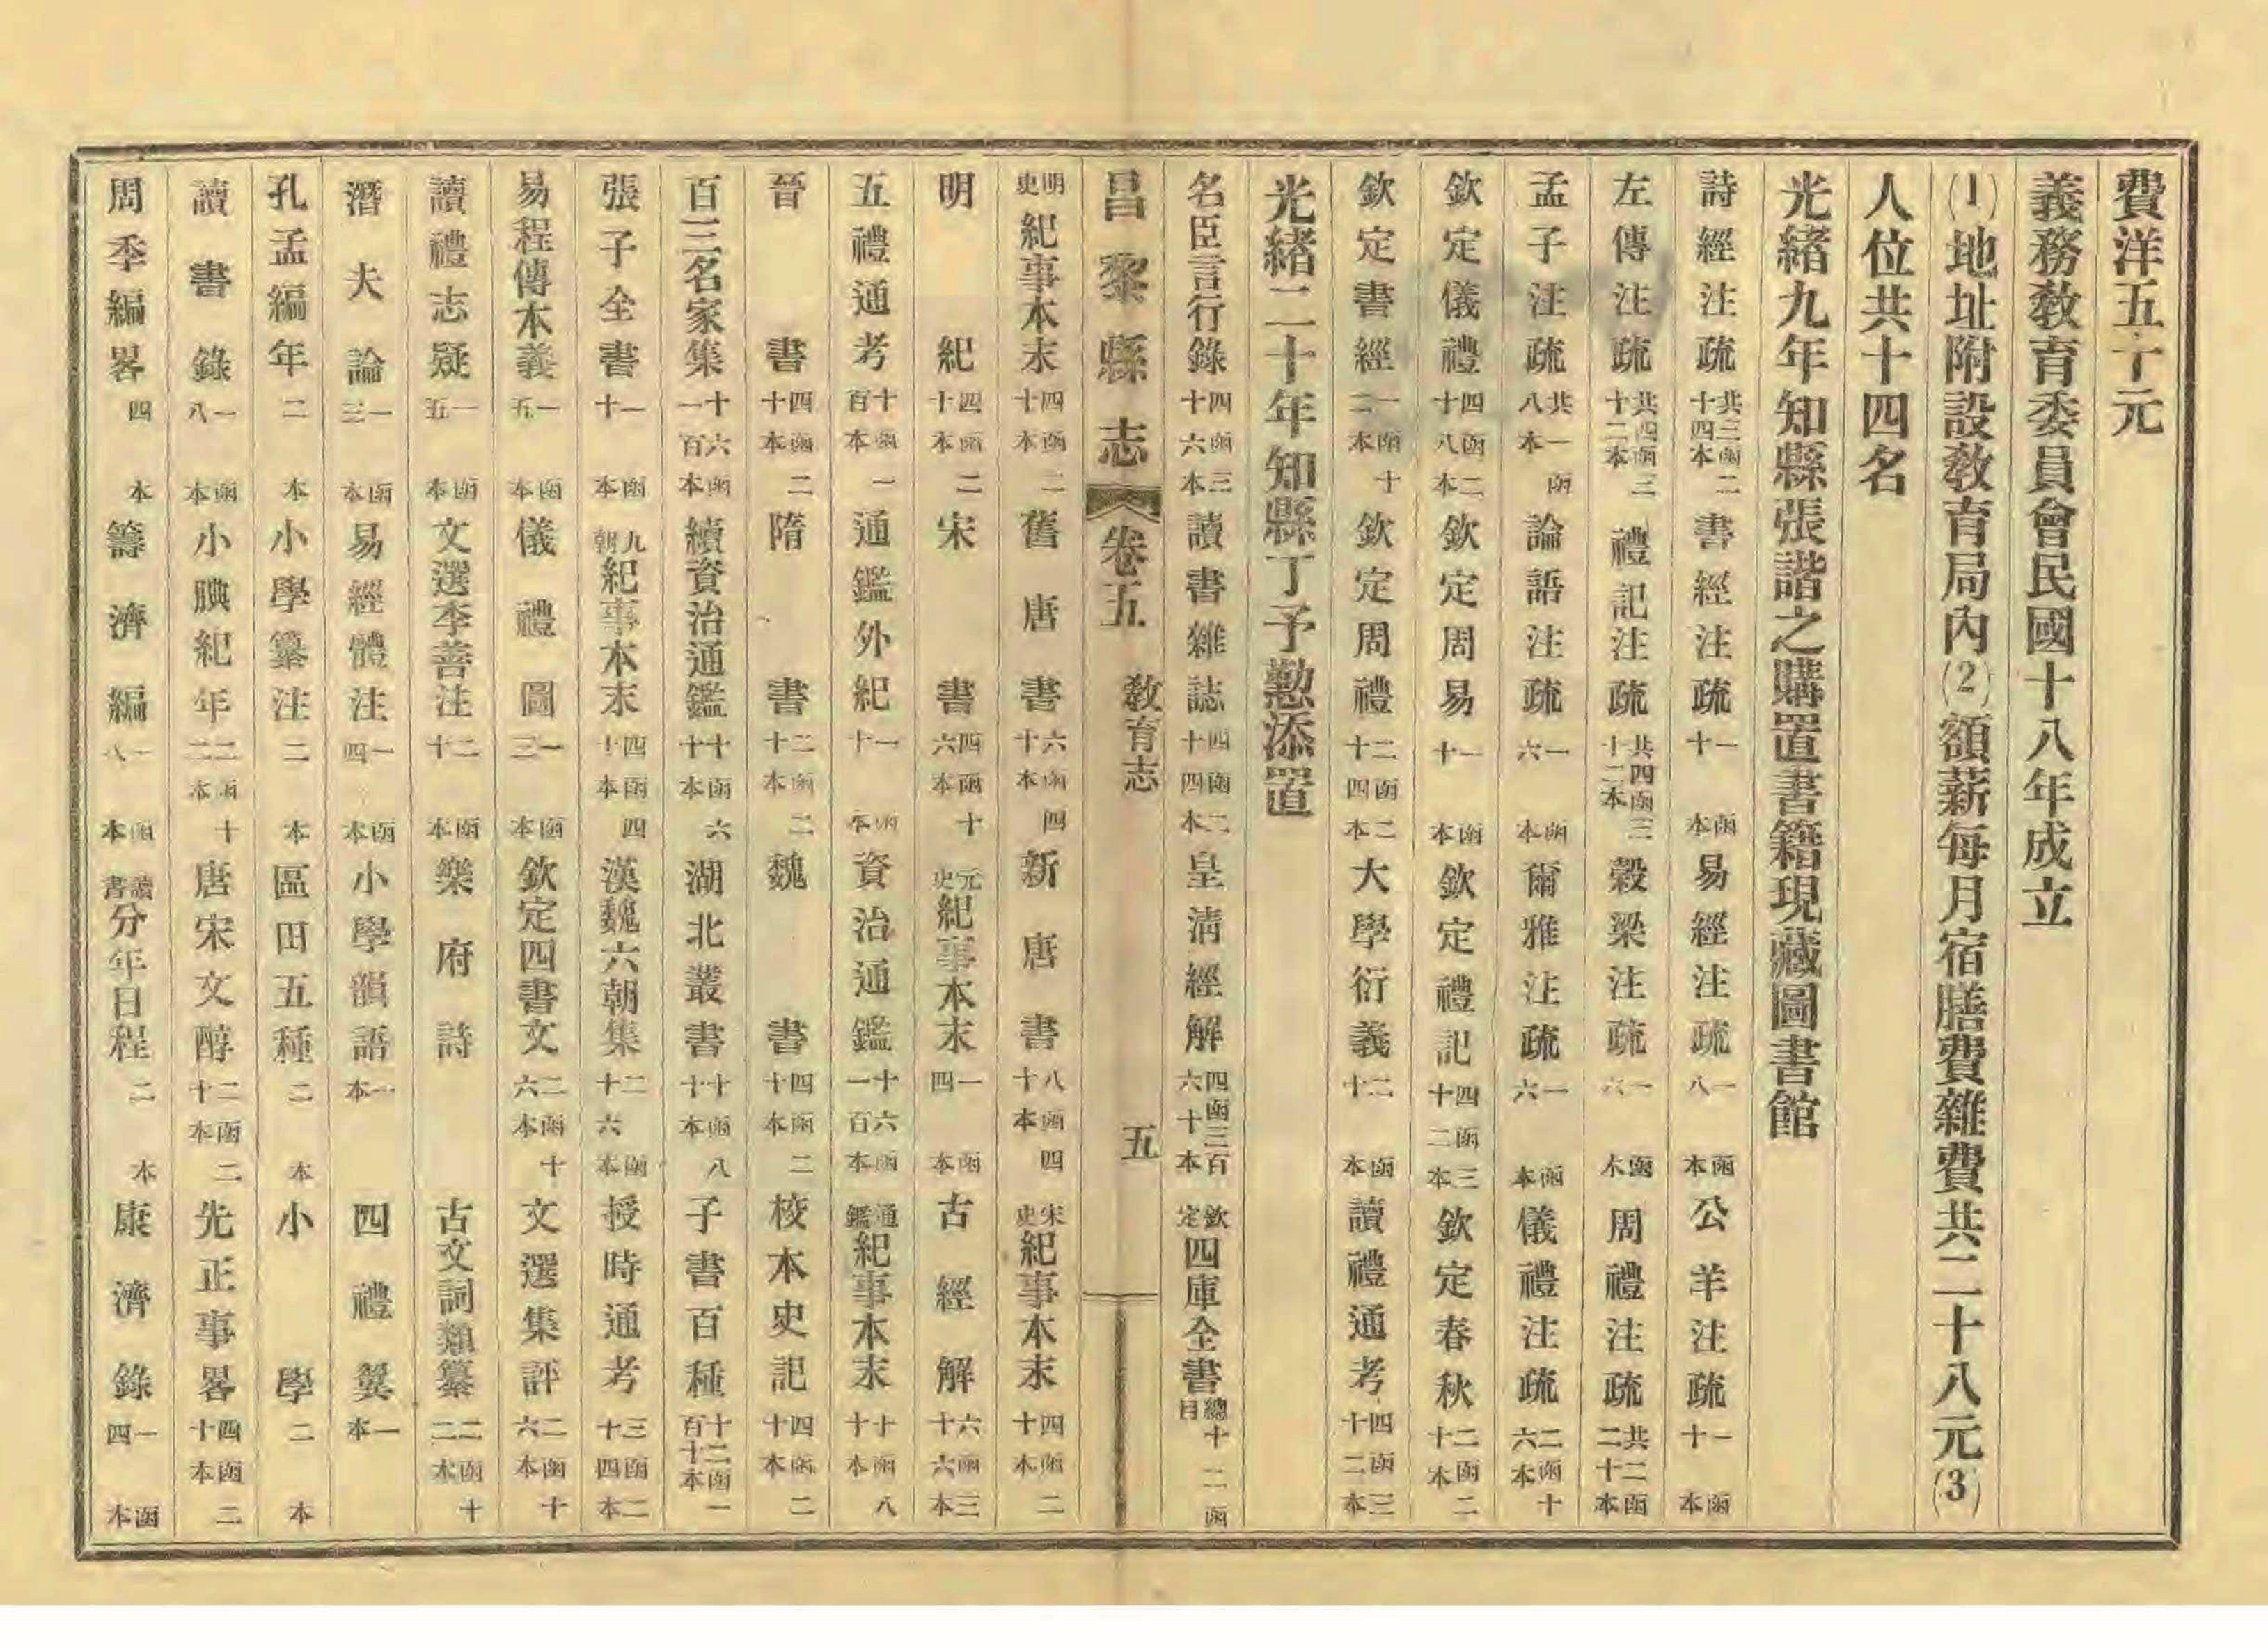 費洋五十元
義務敎育委員會民國十八年成立
(1)地址附設敎育局內(2)額薪每月宿膳費雜費共二十八元(3)
人位共十四名
光緒九年知縣張諧之購置書籍現藏圖書館
詩經注疏共三函二十四本 書經注疏一函十本 易經注疏一函八本 公羊注疏一函十本
左傳注疏共四函三十二本 禮記注疏共四函三十二本 穀梁注疏一函六本 周禮注疏共二函二十本
孟子注疏共一函八本 論語注疏一函六本 爾雅注疏一函六本 儀禮注疏二函十六本
欽定儀禮四函二十八本 欽定周易一函十本 欽定禮記四函三十二本 欽定春秋二函二十本
欽定書經一函十二本 欽定周禮二函二十四本 大學衍義二函十本 讀禮通考四函三十二本
光緒二十年知縣丁予懃添置
名臣言行錄四函三十六本 讀書雜誌四函二十四本 皇淸經解四函三百六十本 欽定四庫全書總目十二函
昌黎縣志 卷五 敎育志 五
明史紀事本末四函二十本 舊唐書六函四十本 新唐書八函四十本 宋史紀事本末四函二十本
明紀四函二十本 宋書四函十六本 元史紀事本末一函四本 古經解六函三十六本
五禮通考十函一百本 通鑑外紀一函十本 資治通鑑十六函一百本 通鑑紀事本末十函八十本
晉書四函二十本 隋書二函二十本 魏書四函二十本 校本史記四函二十本
百三名家集十六函一百本 續資治通鑑十函六十本 湖北叢書十函八十本 子書百種十二函一百十本
張子全書一函十本 九朝紀事本末四函四十本 漢魏六朝集二函十六本 授時通考三函二十四本
易程傳本義一函五本 儀禮圖一函三本 欽定四書文二函十六本 文選集評二函十六本
讀禮志疑一函五本 文選李善注二函十本 樂府詩 古文詞類纂二函十二本
潛夫論一函三本 易經體注一函四本 小學韻語一本 四禮翼一本
孔孟編年二本 小學纂注二本 區田五種二本 小學二本
讀書錄一函八本 小腆紀年二函十二本 唐宋文醇二函二十本 先正事畧四函二十本
周季編畧四本 籌濟編一函八本 讀書分年日程二本 康濟錄一函四本